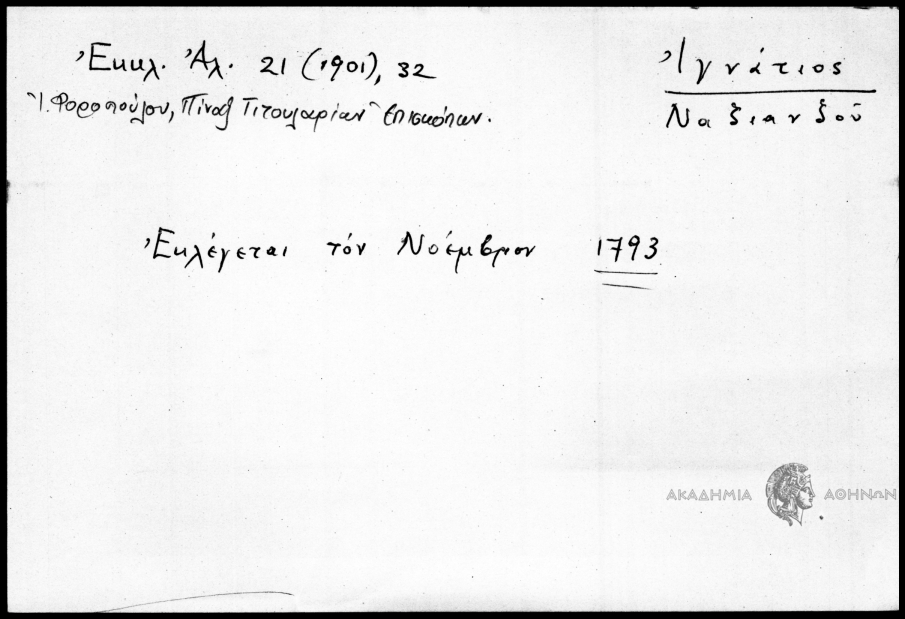 Ἐκκλ. Ἀλ. 21 (1901), 32
Ἰ. Φοροπούλου, Πίναξ Τιτουλαρίων Ἐπισκόπων.
Ἰγνάτιος
Ναζιανζοῦ
Ἐκλέγεται τόν Νοέμβριον 1793
ΑΚΑΔΗΜΙΑ ΑΘΗΝΩΝ